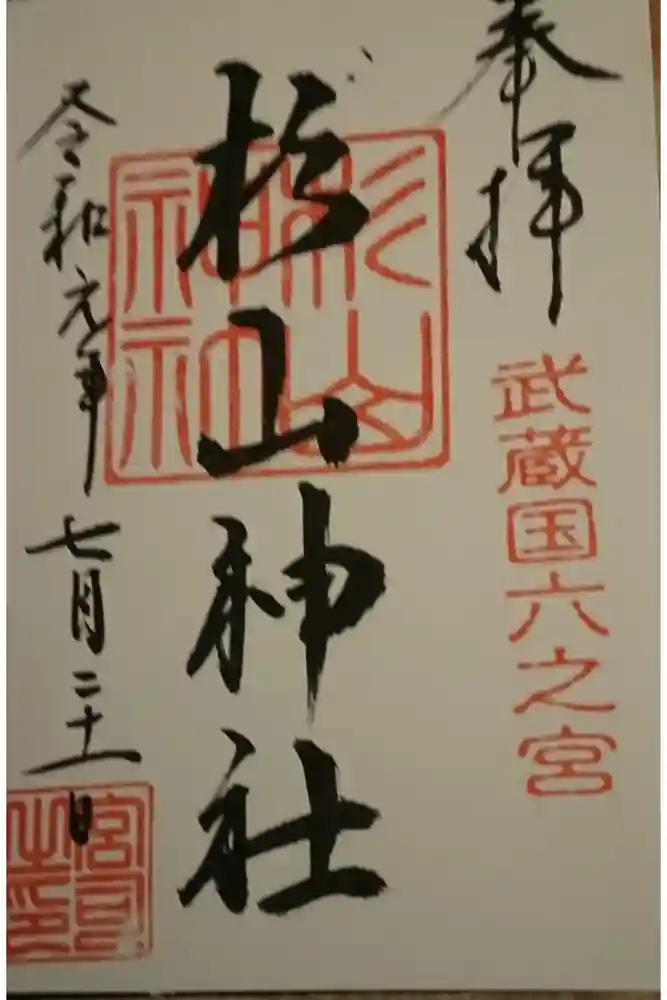 奉拝
武蔵国六之宮
杉山神社
杉山神社
令和元年七月二十一日
宮司之印